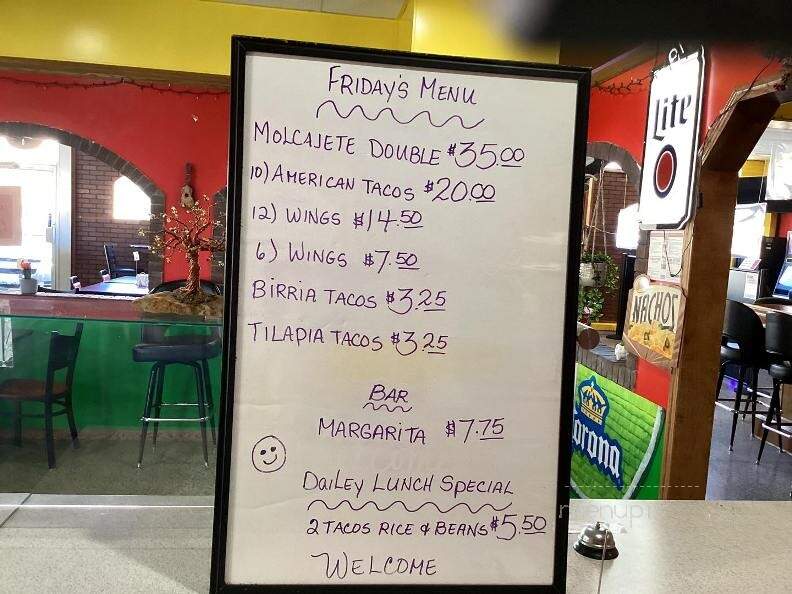 FRIDAY'S MENU
MOLCAJETE DOUBLE $35.00
10) AMERICAN TACOS $20.00
12) WINGS $14.50
6) WINGS $7.50
BIRRIA TACOS $3.25
TILAPIA TACOS $3.25
BAR
MARGARITA $7.75
DaiLEY LUNCH SPECIAL
2 TACOS RICE & BEANS $5.50
WELCOME
Lite
NACHOS
Corona
menupi